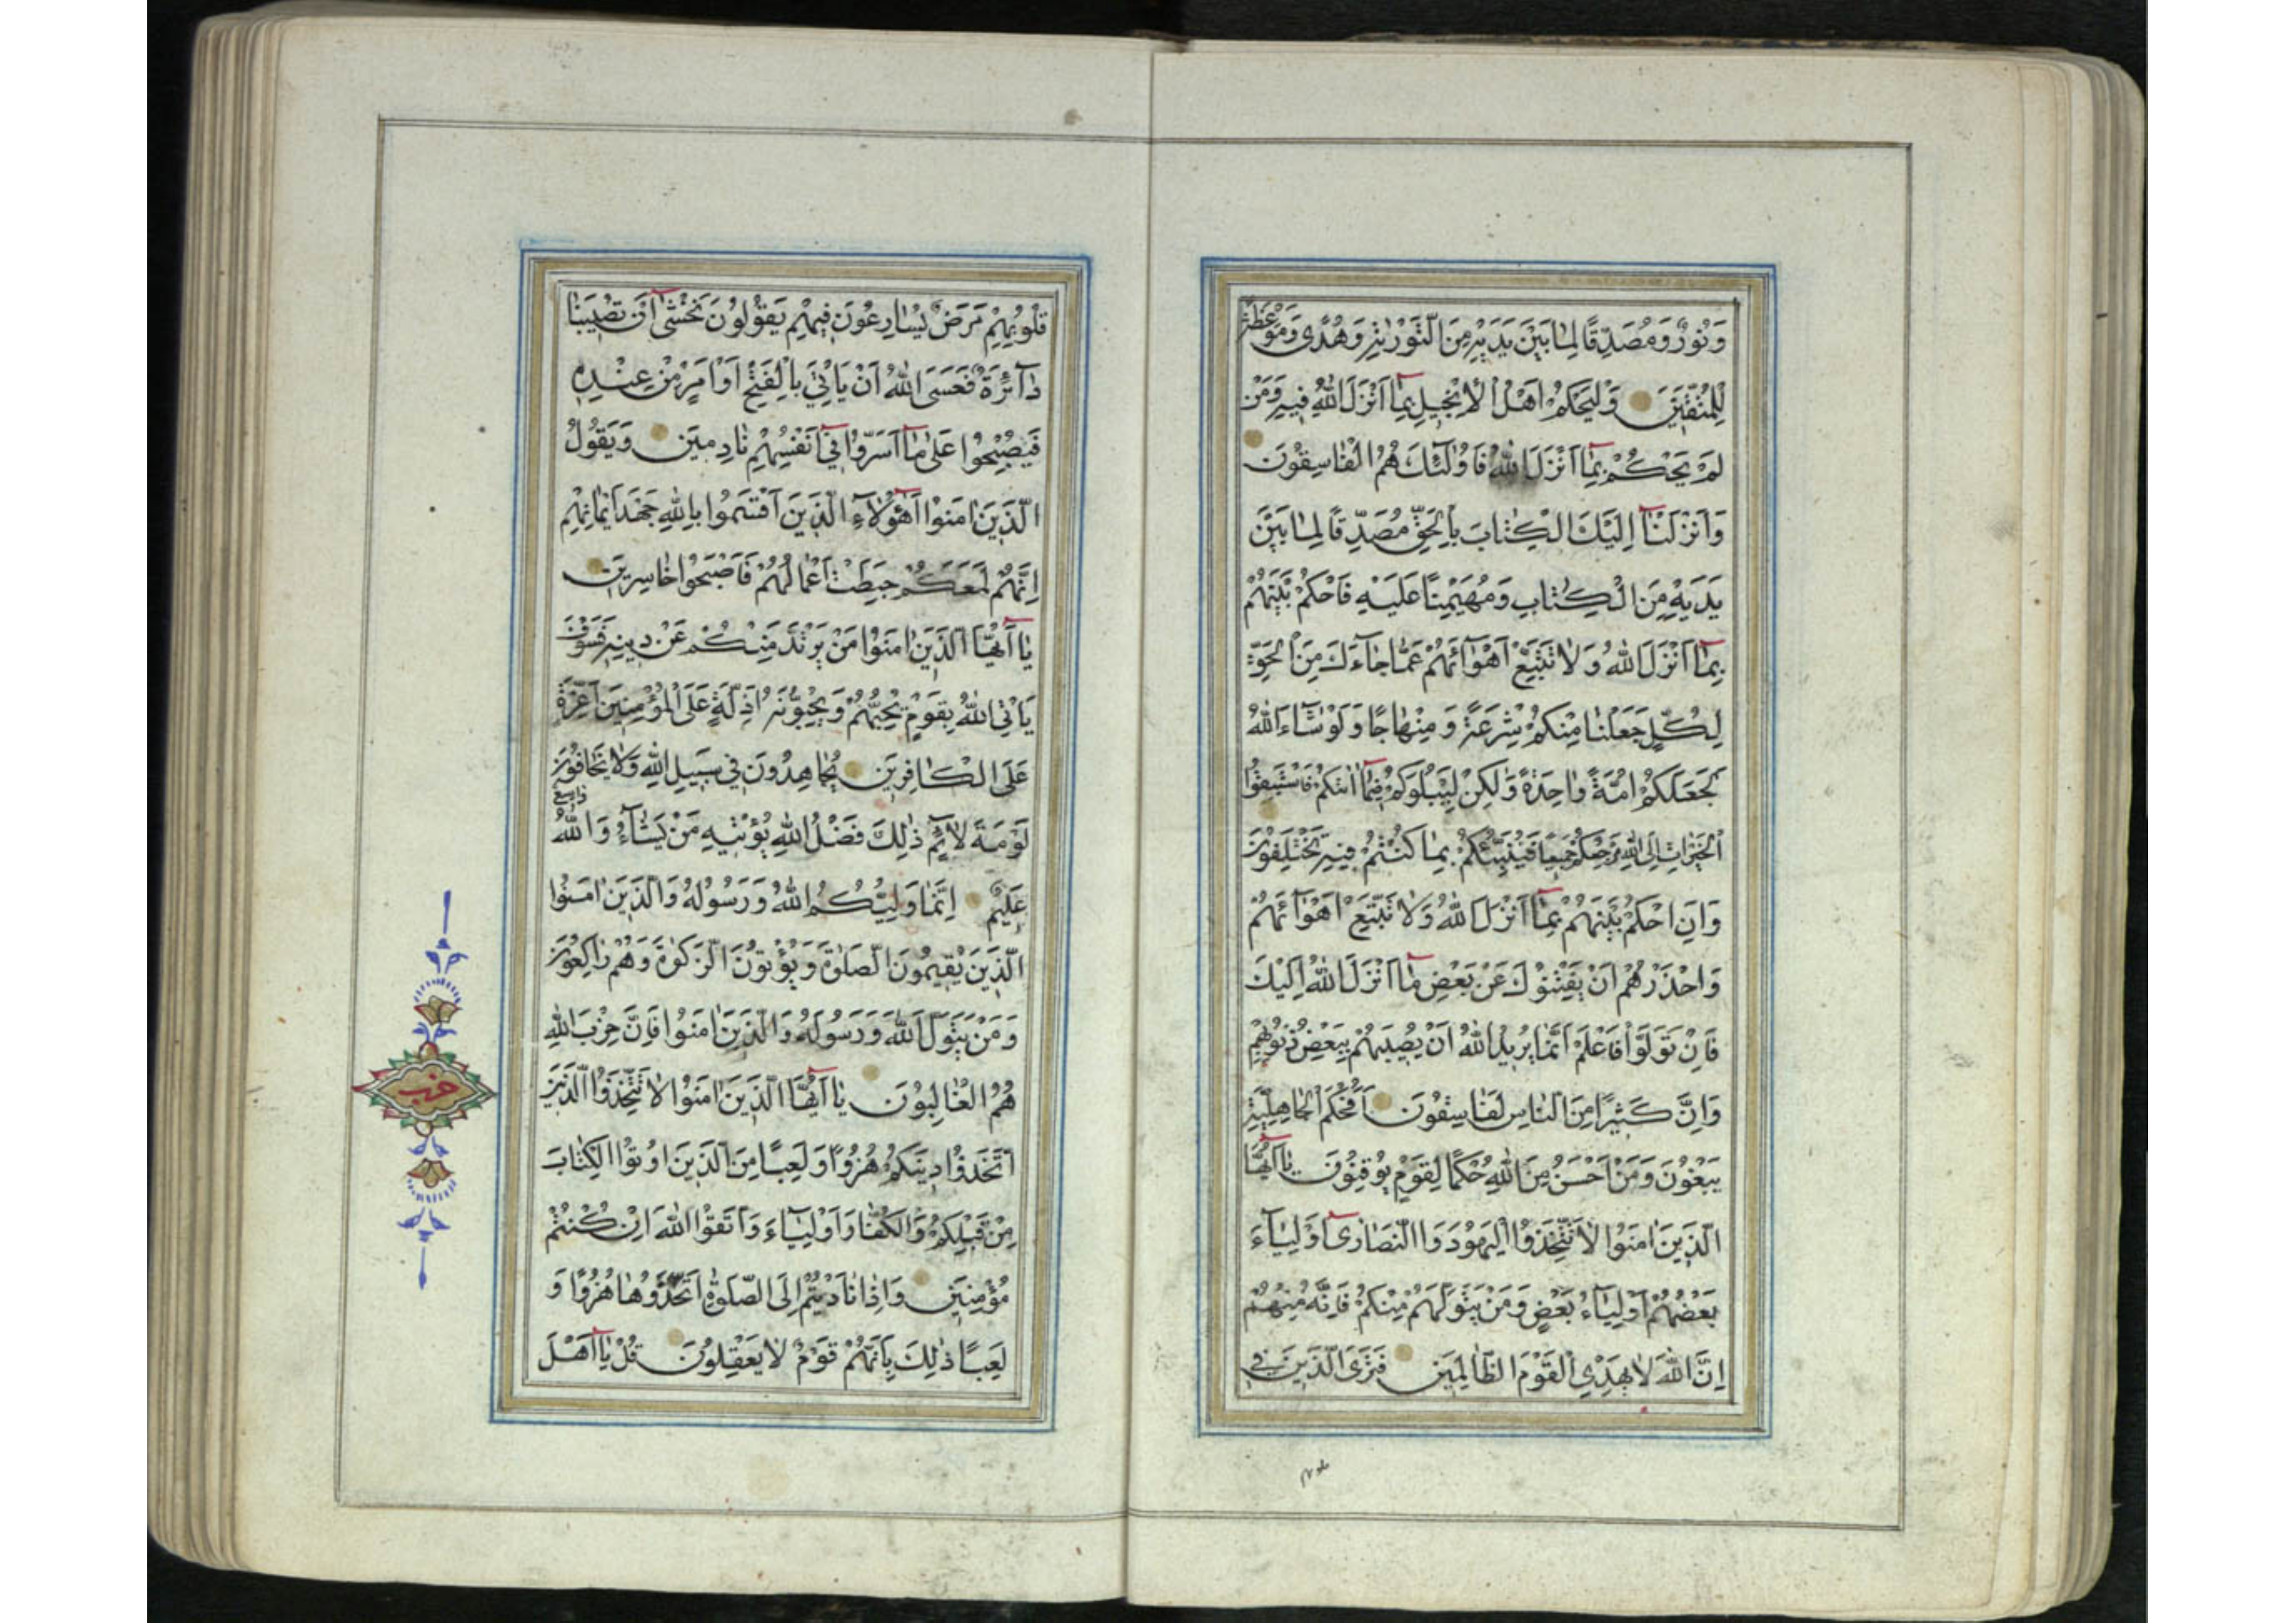 وَنُورٌ وَمُصَدِّقًا لِمَا بَيْنَ يَدَيْهِ مِنَ التَّوْرٰيةِ وَهُدًى وَمَوْعِظَةً
لِلْمُتَّقِينَ وَلْيَحْكُمْ اَهْلُ الْاِنْجِيلِ بِمَا اَنْزَلَ اللّٰهُ فِيهِ وَمَنْ
لَمْ يَحْكُمْ بِمَا اَنْزَلَ اللّٰهُ فَاُولٰئِكَ هُمُ الْفَاسِقُونَ
وَاَنْزَلْنَا اِلَيْكَ الْكِتَابَ بِالْحَقِّ مُصَدِّقًا لِمَا بَيْنَ
يَدَيْهِ مِنَ الْكِتَابِ وَمُهَيْمِنًا عَلَيْهِ فَاحْكُمْ بَيْنَهُمْ
بِمَا اَنْزَلَ اللّٰهُ وَلَا تَتَّبِعْ اَهْوَآئَهُمْ عَمَّا جَاءَكَ مِنَ الْحَقِّ
لِكُلٍّ جَعَلْنَا مِنْكُمْ شِرْعَةً وَمِنْهَاجًا وَلَوْ شَاءَ اللّٰهُ
لَجَعَلَكُمْ اُمَّةً وَاحِدَةً وَلٰكِنْ لِيَبْلُوَكُمْ فِيمَا اٰتٰيكُمْ فَاسْتَبِقُوا
الْخَيْرَاتِ اِلَى اللّٰهِ مَرْجِعُكُمْ جَمِيعًا فَيُنَبِّئُكُمْ بِمَا كُنْتُمْ فِيهِ تَخْتَلِفُونَ
وَاَنِ احْكُمْ بَيْنَهُمْ بِمَا اَنْزَلَ اللّٰهُ وَلَا تَتَّبِعْ اَهْوَآئَهُمْ
وَاحْذَرْهُمْ اَنْ يَفْتِنُوكَ عَنْ بَعْضِ مَا اَنْزَلَ اللّٰهُ اِلَيْكَ
فَاِنْ تَوَلَّوْا فَاعْلَمْ اَنَّمَا يُرِيدُ اللّٰهُ اَنْ يُصِيبَهُمْ بِبَعْضِ ذُنُوبِهِمْ
وَاِنَّ كَثِيرًا مِنَ النَّاسِ لَفَاسِقُونَ اَفَحُكْمَ الْجَاهِلِيَّةِ
يَبْغُونَ وَمَنْ اَحْسَنُ مِنَ اللّٰهِ حُكْمًا لِقَوْمٍ يُوقِنُونَ يَا اَيُّهَا
الَّذِينَ اٰمَنُوا لَا تَتَّخِذُوا الْيَهُودَ وَالنَّصَارٰى اَوْلِيَاءَ
بَعْضُهُمْ اَوْلِيَاءُ بَعْضٍ وَمَنْ يَتَوَلَّهُمْ مِنْكُمْ فَاِنَّهُ مِنْهُمْ
اِنَّ اللّٰهَ لَا يَهْدِي الْقَوْمَ الظَّالِمِينَ فَتَرَى الَّذِينَ فِي
قُلُوبِهِمْ مَرَضٌ يُسَارِعُونَ فِيهِمْ يَقُولُونَ نَخْشٰى اَنْ تُصِيبَنَا
دَآئِرَةٌ فَعَسَى اللّٰهُ اَنْ يَاْتِيَ بِالْفَتْحِ اَوْ اَمْرٍ مِنْ عِنْدِهِ
فَيُصْبِحُوا عَلٰى مَا اَسَرُّوا فِي اَنْفُسِهِمْ نَادِمِينَ وَيَقُولُ
الَّذِينَ اٰمَنُوا اَهٰؤُلَاءِ الَّذِينَ اَقْسَمُوا بِاللّٰهِ جَهْدَ اَيْمَانِهِمْ
اِنَّهُمْ لَمَعَكُمْ حَبِطَتْ اَعْمَالُهُمْ فَاَصْبَحُوا خَاسِرِينَ
يَا اَيُّهَا الَّذِينَ اٰمَنُوا مَنْ يَرْتَدَّ مِنْكُمْ عَنْ دِينِهِ فَسَوْفَ
يَاْتِي اللّٰهُ بِقَوْمٍ يُحِبُّهُمْ وَيُحِبُّونَهُ اَذِلَّةٍ عَلَى الْمُؤْمِنِينَ اَعِزَّةٍ
عَلَى الْكَافِرِينَ يُجَاهِدُونَ فِي سَبِيلِ اللّٰهِ وَلَا يَخَافُونَ
لَوْمَةَ لَائِمٍ ذٰلِكَ فَضْلُ اللّٰهِ يُؤْتِيهِ مَنْ يَشَاءُ وَاللّٰهُ وَاسِعٌ
عَلِيمٌ اِنَّمَا وَلِيُّكُمُ اللّٰهُ وَرَسُولُهُ وَالَّذِينَ اٰمَنُوا
الَّذِينَ يُقِيمُونَ الصَّلٰوةَ وَيُؤْتُونَ الزَّكٰوةَ وَهُمْ رَاكِعُونَ
وَمَنْ يَتَوَلَّ اللّٰهَ وَرَسُولَهُ وَالَّذِينَ اٰمَنُوا فَاِنَّ حِزْبَ اللّٰهِ
هُمُ الْغَالِبُونَ يَا اَيُّهَا الَّذِينَ اٰمَنُوا لَا تَتَّخِذُوا الَّذِينَ
اتَّخَذُوا دِينَكُمْ هُزُوًا وَلَعِبًا مِنَ الَّذِينَ اُوتُوا الْكِتَابَ
مِنْ قَبْلِكُمْ وَالْكُفَّارَ اَوْلِيَاءَ وَاتَّقُوا اللّٰهَ اِنْ كُنْتُمْ
مُؤْمِنِينَ وَاِذَا نَادَيْتُمْ اِلَى الصَّلٰوةِ اتَّخَذُوهَا هُزُوًا وَ
لَعِبًا ذٰلِكَ بِاَنَّهُمْ قَوْمٌ لَا يَعْقِلُونَ قُلْ يَا اَهْلَ
حزب